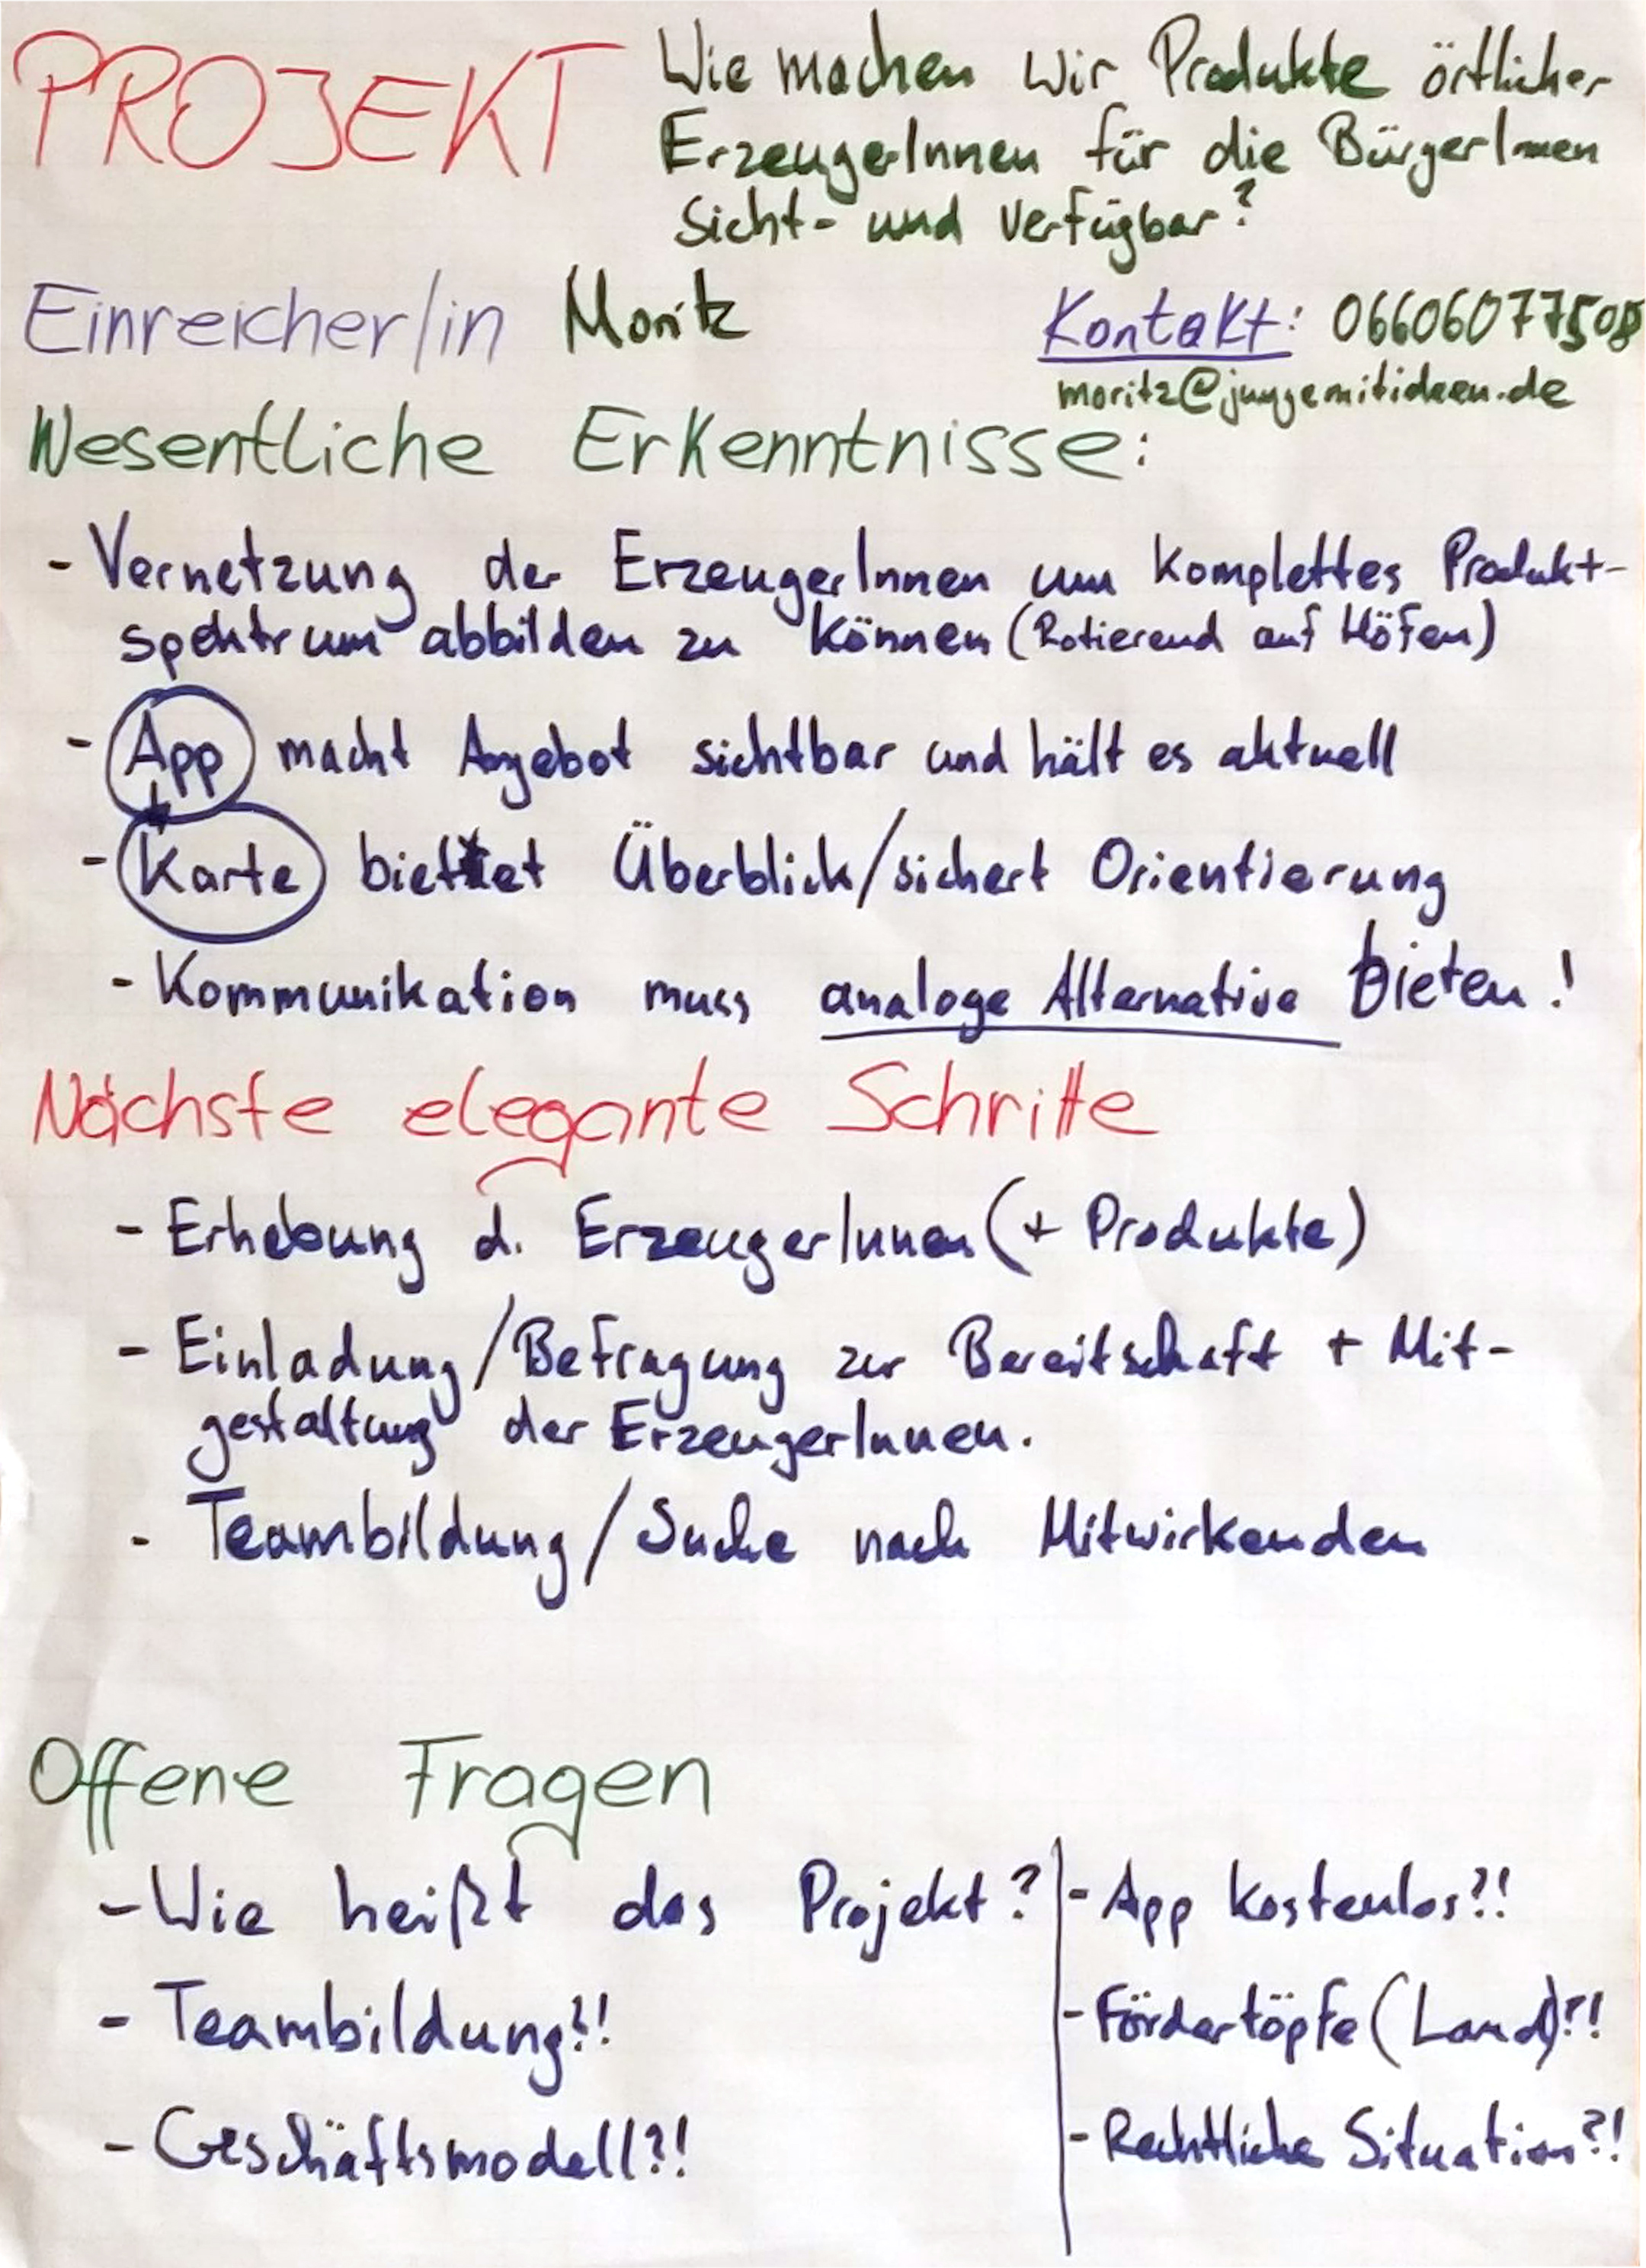 PROJEKT Wie machen wir Produkte örtlicher
ErzeugerInnen für die BürgerInnen
Sicht- und Verfügbar?
Einreicher/in Moritz Kontakt: 06606077508
moritz@jungemitideen.de
Wesentliche Erkenntnisse:
- Vernetzung der ErzeugerInnen um komplettes Produkt-
spektrum abbilden zu können (Rotierend auf Höfen)
- App macht Angebot sichtbar und hält es aktuell
- Karte bietet Überblick/sichert Orientierung
- Kommunikation muss analoge Alternative bieten!
Nächste elegante Schritte
- Erhebung d. ErzeugerInnen (+ Produkte)
- Einladung/Befragung zur Bereitschaft + Mit-
gestaltung der ErzeugerInnen.
- Teambildung/Suche nach Mitwirkenden
Offene Fragen
- Wie heißt das Projekt?
- Teambildung?!
- Geschäftsmodell?!
- App kostenlos?!
- Fördertöpfe (Land)?!
- Rechtliche Situation?!